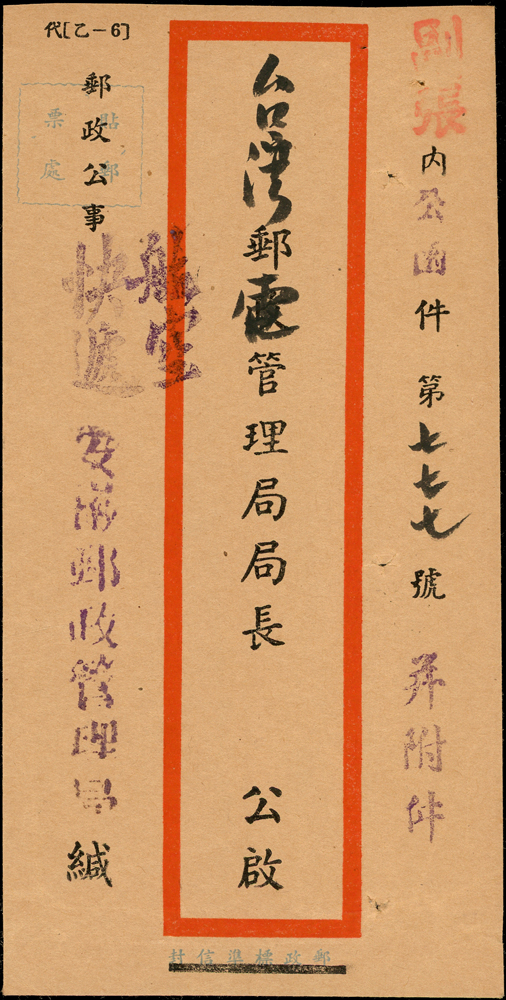 代[乙—6]
副張
内公函件第七七七號 并附件
台灣郵電管理局局長 公啟
航空
快遞
郵政公事
貼郵
票處
郵政管理局 緘
郵政標準信封